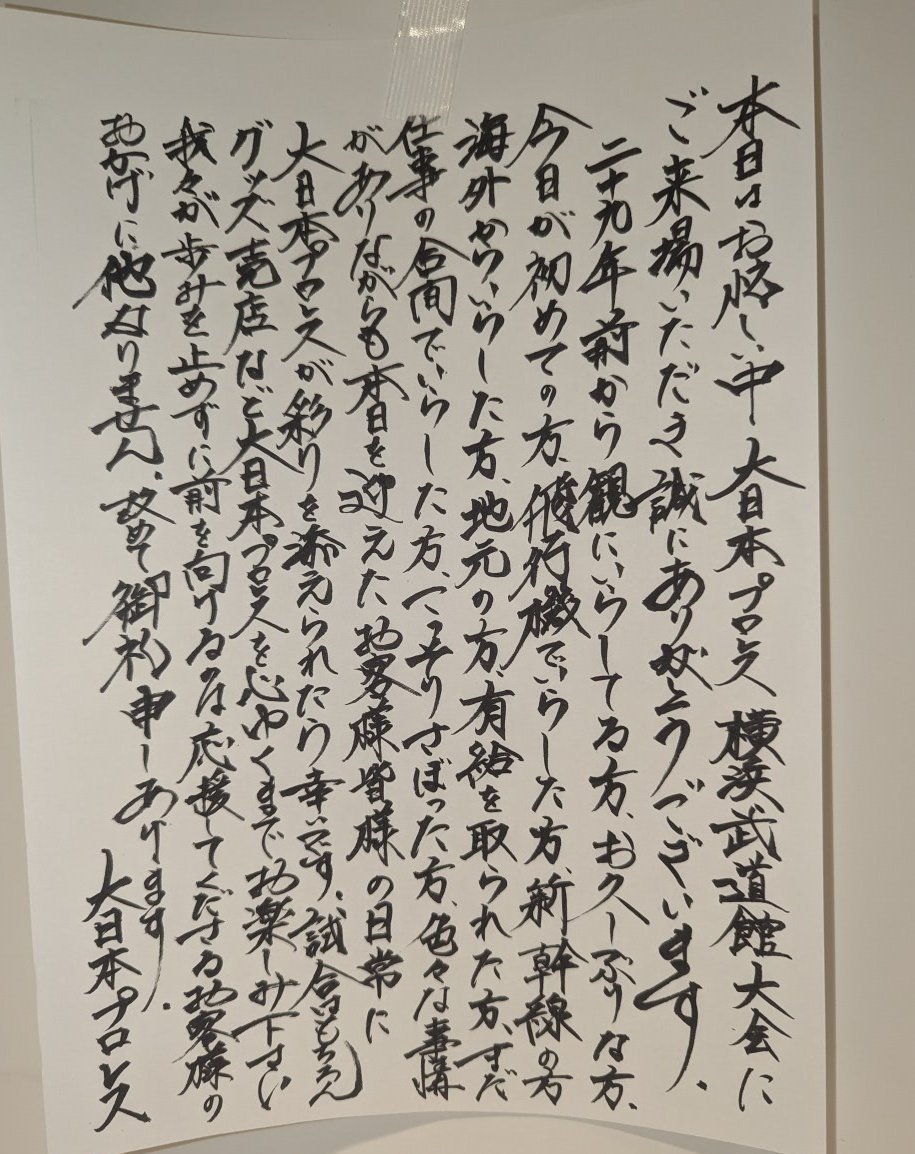 本日はお忙しい中大日本プロレス横浜武道館大会に
ご来場いただき誠にありがとうございます。
二十九年前から観にいらしてる方、お久しぶりな方、
今日が初めての方、飛行機でいらした方、新幹線の方
海外からいらした方、地元の方、有給を取られた方、まだ
仕事の合間でいらした方、こっそりさぼった方、色々な事情
がありながらも本日を迎えたお客様皆様の日常に
大日本プロレスが彩りを添えられたら幸いです。試合はもちろん
グッズ売店など大日本プロレスを心ゆくまでお楽しみ下さい
我々が歩みを止めずに前を向けるのは応援してくださるお客様の
おかげに他なりません。改めて御礼申しあげます。
大日本プロレス